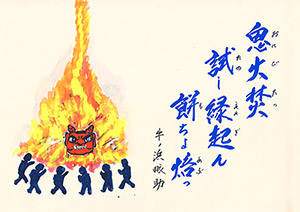 鬼火焚
おにびたっ
試し縁起ん
ため えんぎ
餅ちょ焙っ
も あぶ
牛ノ浜眠助